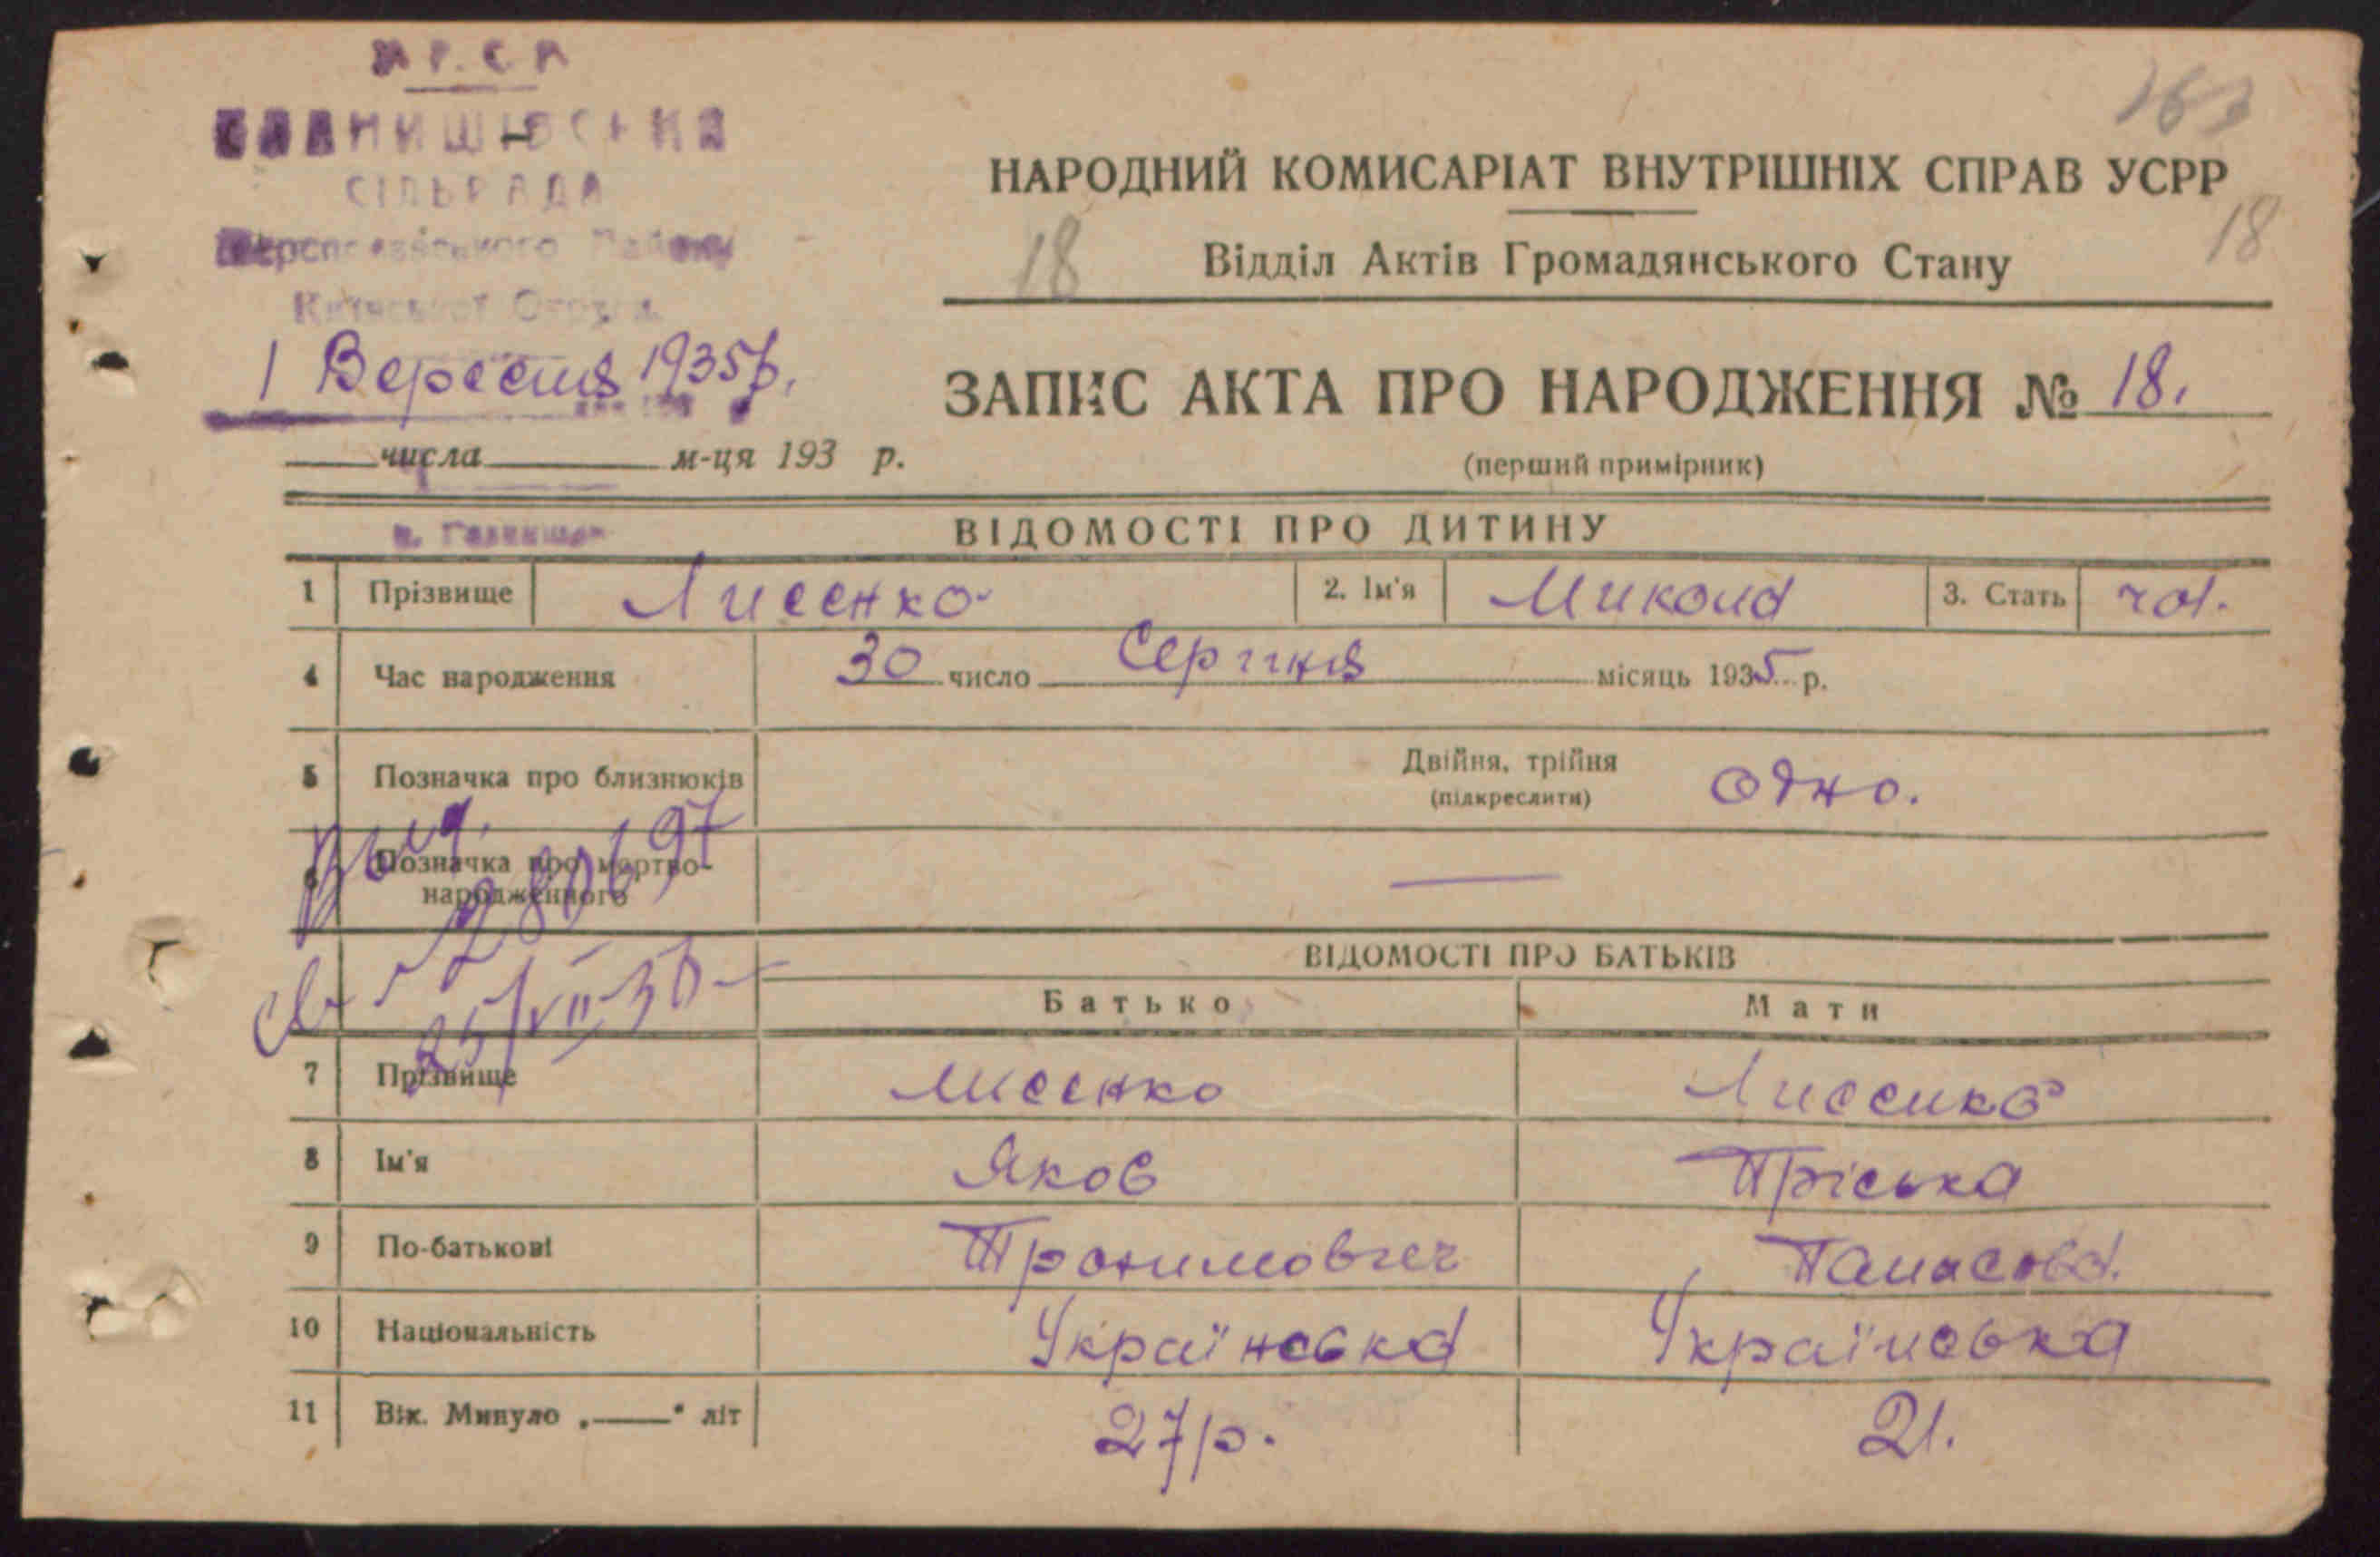 СІЛЬРАДА
НАРОДНИЙ КОМИСАРІАТ ВНУТРІШНІХ СПРАВ УСРР
18
18
Відділ Актів Громадянського Стану
1 Вересня 1935 р.
ЗАПИС АКТА ПРО НАРОДЖЕННЯ № 18.
числа м-ця 193 р.
(перший примірник)
ВІДОМОСТІ ПРО ДИТИНУ
1 Прізвище Лисенко 2. Ім'я Микола 3. Стать чол.
4 Час народження 30 число Серпня місяць 1935 р.
5 Позначка про близнюків Двійня, трійня (підкреслити) Одно.
6 Позначка про мертво-
народженного —
25/VII-36
ВІДОМОСТІ ПРО БАТЬКІВ
Батько Мати
7 Прізвище Лисенко Лисенко
8 Ім'я Яков Пріська
9 По-батькові Трохимович Панасова.
10 Національність Українська Українська
11 Вік. Минуло „——“ літ 27 р. 21.